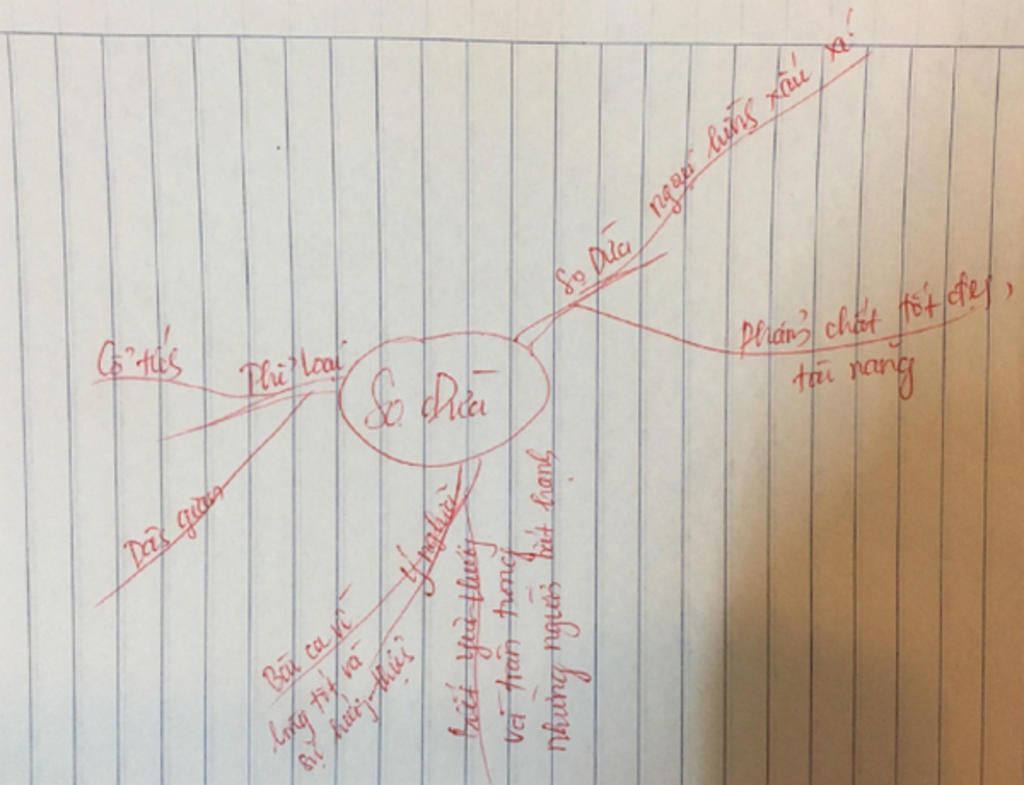 Sọ dừa
Thể loại
Cổ tích
Dân gian
Sọ Dừa
ngoại hình xấu xí
phẩm chất tốt đẹp,
tài năng
ý nghĩa
Bài ca về
lòng tốt và
sự hướng thiện
biết yêu thương
và trân trọng
những người bất hạnh